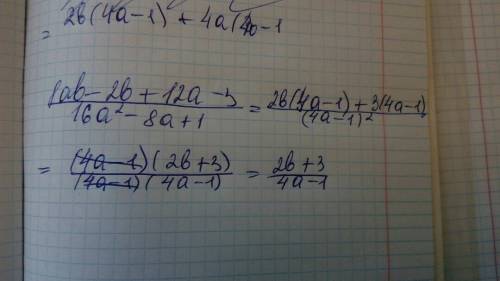 = 2b(4a-1) + 4a(4b-1
8ab-2b+12a-3 / 16a²-8a+1 = 2b(4a-1)+3(4a-1) / (4a-1)²
= (4a-1)(2b+3) / (4a-1)(4a-1) = 2b+3 / 4a-1